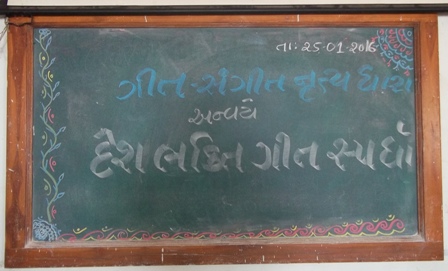 તા: 25-01-2016
ગીત-સંગીત નૃત્ય ધારા
અન્વયે
દેશ ભક્તિ ગીત સ્પર્ધા